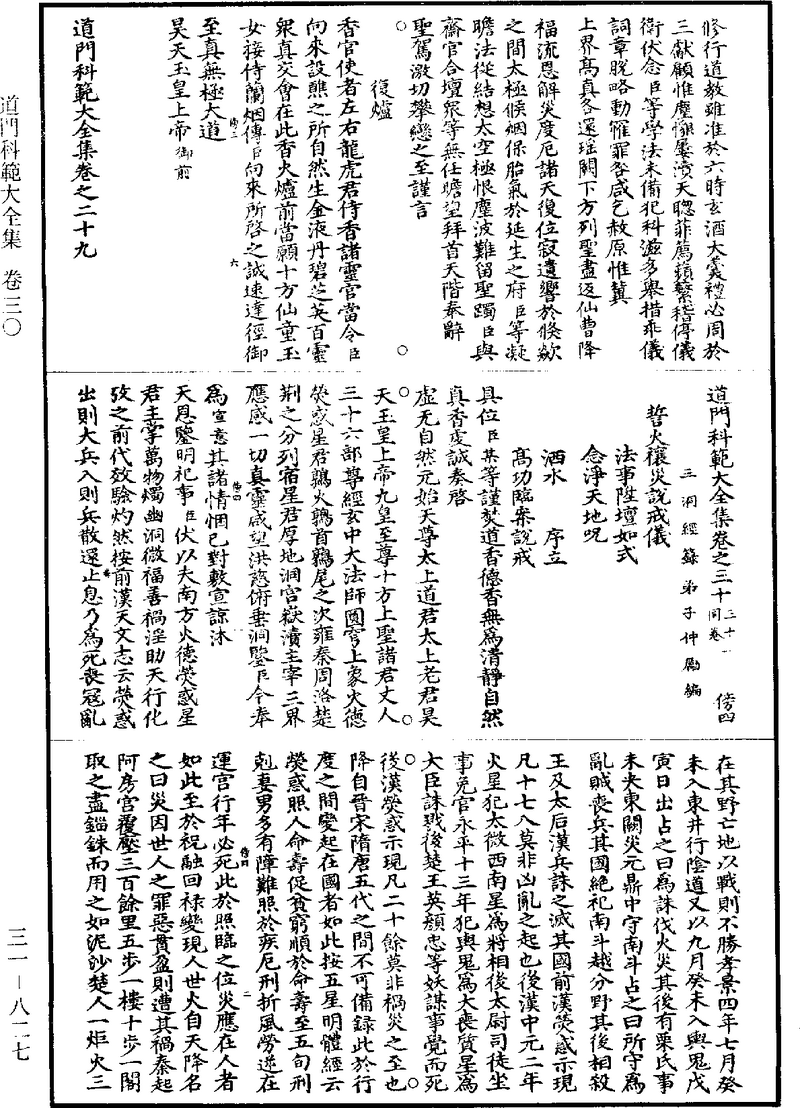 修行道教雖准於六時玄酒大羹禮必周於
三獻顧惟塵㡡屢瀆天聦菲薦蘋蘩稽停儀
衛伏念臣等學法未備犯科滋多舉措乖儀
詞章脫略動罹罪咎咸乞赦原惟冀
上界髙真各還瑶闕下方列聖盡返仙曹降
福流恩解災度厄諸天復位寂遺響於倏歘
之間太極候烟保胎氣於延生之府臣等凝
瞻法從結想太空極恨塵波難留聖躅臣與
齋官合壇衆等無任瞻望拜首天階奉辭
聖駕激切攀戀之至謹言
復爐
香官使者左右龍虎君侍香諸靈官當令臣
向來設醮之所自然生金液丹碧芝英百靈
衆真交會在此香火爐前當願十方仙童玉
女接侍蘭烟傳臣向來所啓之誠速達徑御
至真無極大道
昊天玉皇上帝御前
道門科範大全集卷之二十九
道門科範大全集卷之三十 三十一同卷 傍四
三洞經籙弟子仲勵編
誓火禳災說戒儀
法事陞壇如式
念淨天地呪
洒水 序立
髙功臨案說戒
具位臣某等謹焚道香德香無為清靜自然
真香虔誠奏啓
虚无自然元始天尊太上道君太上老君昊
天玉皇上帝九皇至尊十方上聖諸君丈人
三十六部尊經玄中大法師圓穹上象火德
熒惑星君鶉火鶉首鶉尾之次雍秦周洛楚
荆之分列宿星君厚地洞宫嶽瀆主宰三界
應感一切真靈咸望洪慈俯垂洞鑒臣今奉
為宣意其諸情悃已對敷宣諒沐
天恩鑒明祀事臣伏以夫南方火德熒惑星
君主掌萬物燭幽洞微福善禍淫助天行化
攷之前代效驗灼然按前漢天文志云熒惑
出則大兵入則兵散還止息乃為死喪冦亂
在其野亡地以戰則不勝孝景四年七月癸
未入東井行陰道又以九月癸未入輿鬼戊
寅日出占之曰為誅伐火災其後有栗氏事
未央東闕災元鼎中守南斗占之曰所守為
亂賊喪兵其國絶祀南斗越分野其後相殺
王及太后漢兵誅之滅其國前漢熒惑示現
凡十七八莫非凶亂之起也後漢中元二年
火星犯太微西南星為將相後太尉司徒坐
事免官永平十三年犯輿鬼為大喪質星為
大臣誅戮後楚王英顏忠等妖謀事覺而死
後漢熒惑示現凡二十餘莫非禍災之至也
降自晉宋隋唐五代之間不可備録此於行
度之間變起在國者如此按五星明體經云
熒惑照人命夀促貧窮順於命夀至五旬刑
尅妻男多有障難照於疾厄刑折風勞逆在
運宫行年必死此於照臨之位災應在人者
如此至於祝融回禄變現人世火自天降名
之曰災因世人之罪惡貫盈則遭其禍秦起
阿房宫覆壓三百餘里五步一樓十步一閣
取之盡錙銖而用之如泥沙楚人一炬火三
道門科範大全集 卷三〇
三一－八二七